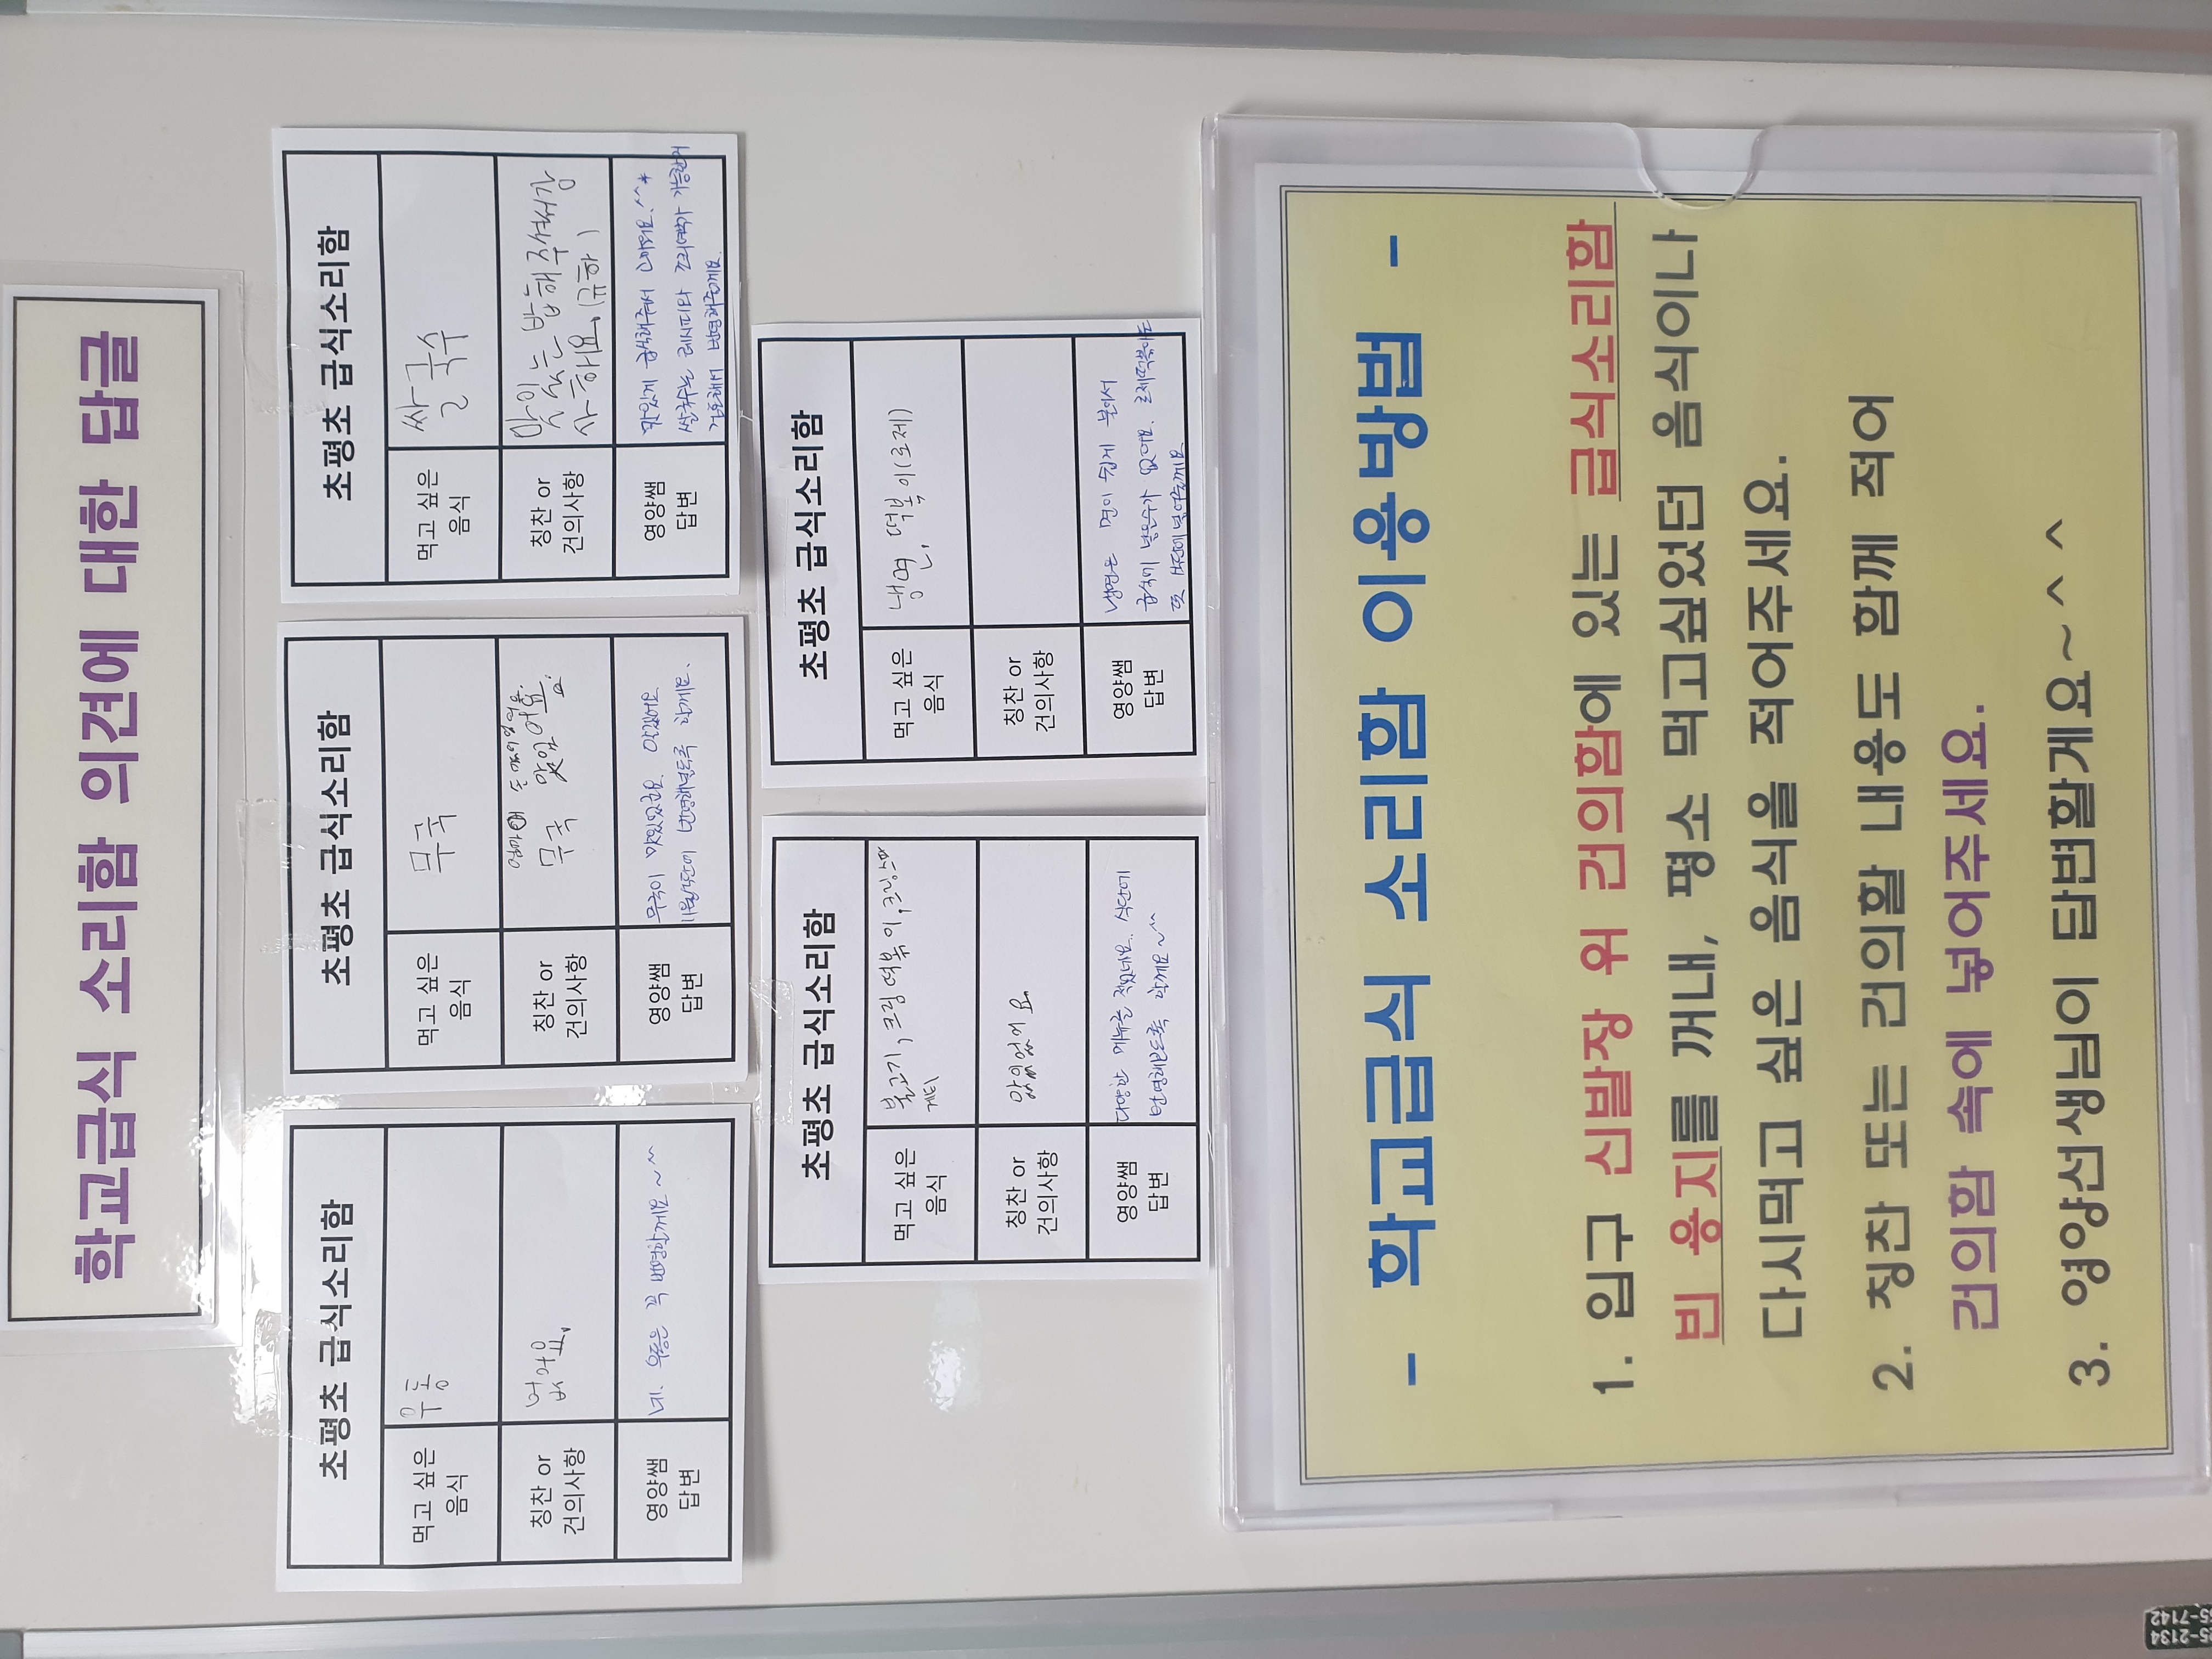 학교급식 소리함 의견에 대한 답글
초평초 급식소리함
먹고 싶은
음식
우동
칭찬 or
건의사항
없어요.
영양쌤
답변
네. 우동은 꼭 반영할게요~^^
초평초 급식소리함
먹고 싶은
음식
무국
칭찬 or
건의사항
무국 맜있어요.
영양쌤
답변
무국이 맛있었군요. 알겠어요
11월식단에 반영해보도록 할게요.
초평초 급식소리함
먹고 싶은
음식
쌀국수
칭찬 or
건의사항
맛있는 밥해주셔서감
사해요.(규하)
영양쌤
답변
맛있게 급식해줘서 고마워요.^^*
쌀국수는 레시피와 조리여부가 가능한지
검토해서 반영해줄게요.
초평초 급식소리함
먹고 싶은
음식
불고기, 크림떡볶이, 크림스파
게티
칭찬 or
건의사항
맜있었어요
영양쌤
답변
다양한 메뉴를 적었네요. 식단에
반영해보도록 할게요~^^
초평초 급식소리함
먹고 싶은
음식
냉면, 떡복이(로제)
칭찬 or
건의사항
영양쌤
답변
냉면은 면이 쉽게 불어서
급식에 넣을수가 없어요. 로제떡볶이는
또 식단에 넣어줄게요
- 학교급식 소리함 이용방법 -
1. 입구 신발장 위 건의함에 있는 급식소리함
빈 용지를 꺼내, 평소 먹고싶었던 음식이나
다시먹고 싶은 음식을 적어주세요.
2. 칭찬 또는 건의할 내용도 함께 적어
건의함 속에 넣어주세요.
3. 영양선생님이 답변할게요~^^